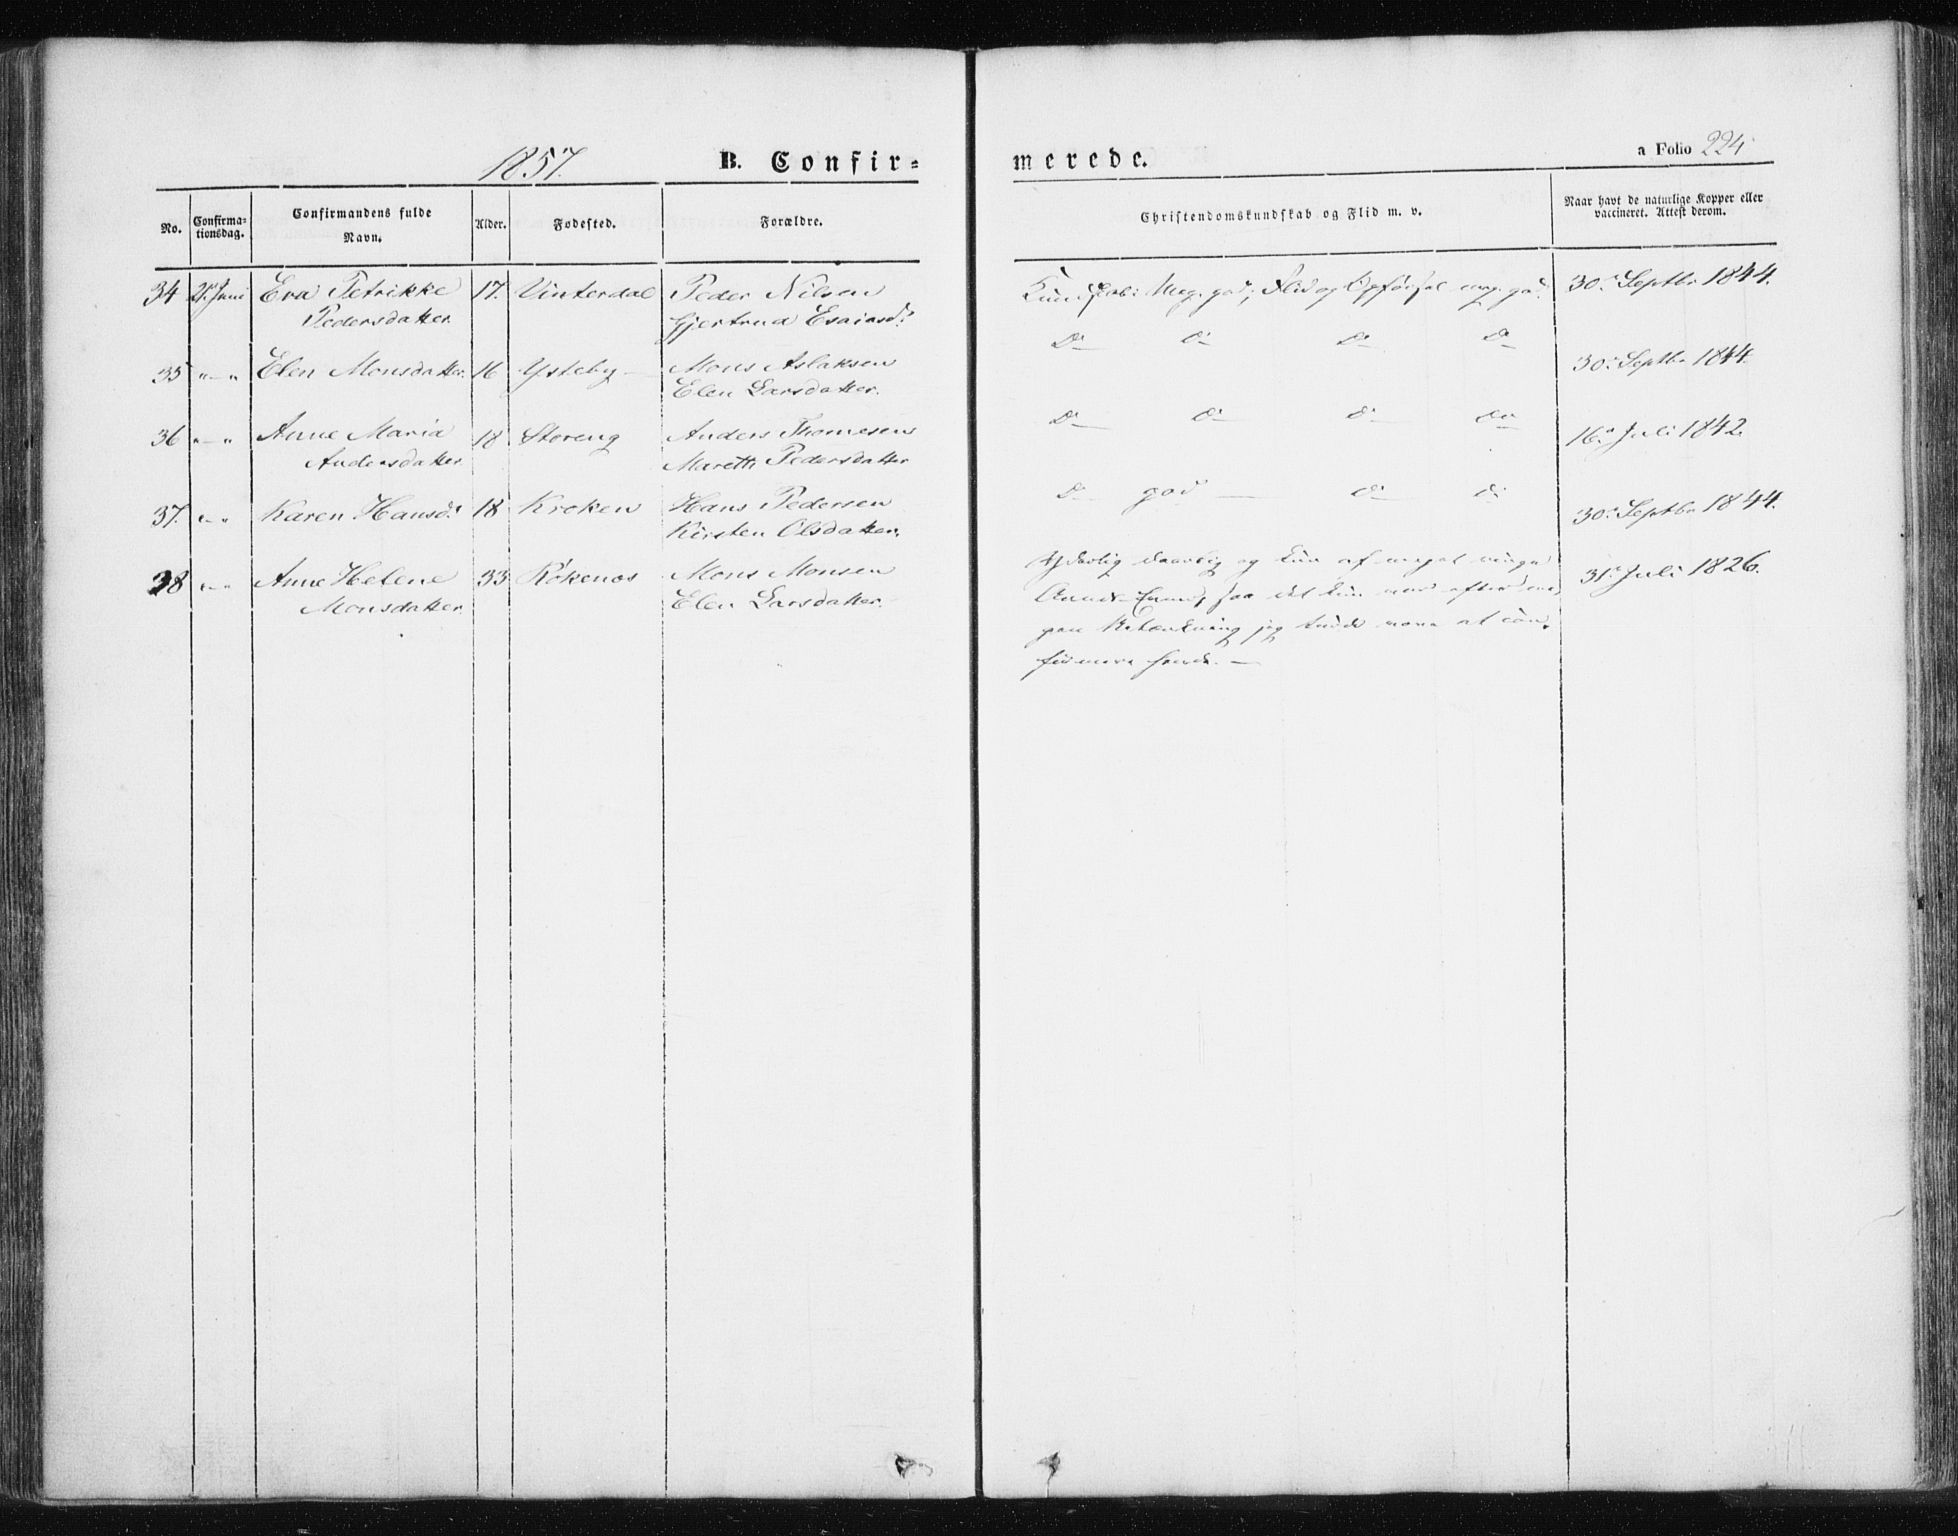 1857.
B. Confir=
merede.
a Folio 224
No.
Confirma-
tionsdag.
Confirmandens fulde
Navn.
Alder.
Fødested.
Forældre.
Christendomskundskab og Flid m. v.
Naar havt de naturlige Kopper eller
vaccineret. Attest derom.
34 21. Juni Eva Petrikke 17. Vinterdal Peder Nilsen Kundskab: Meg. god; Flid og Opførsel meg. god. 30. Septbr 1844.
Pedersdatter Gjertrud Esaiasd.
35 "—" Elen Monsdatter 16 Ysteby — Mons Aslaksen Do Do Do Do 30. Septbr 1844.
Elen Larsdatter.
36 "—" Anne Maria 18 Storeng Anders Thomesen Do Do Do Do 16. Juli 1842.
Andersdatter Marethe Pedersdatter
37. "—" Karen Hansd. 18 Kroken Hans Pedersen Do god — Do Do 30. Septbr 1844.
Kirsten Olsdatter.
38 "—" Anne Helene 33 Rökenes Mons Monsen Yderlig daarlig og kun af meget ringe 31. Juli 1826.
Monsdatter Elen Larsdatter.
saa det kun var efter
jeg turde vove at con-
firmere hende. —